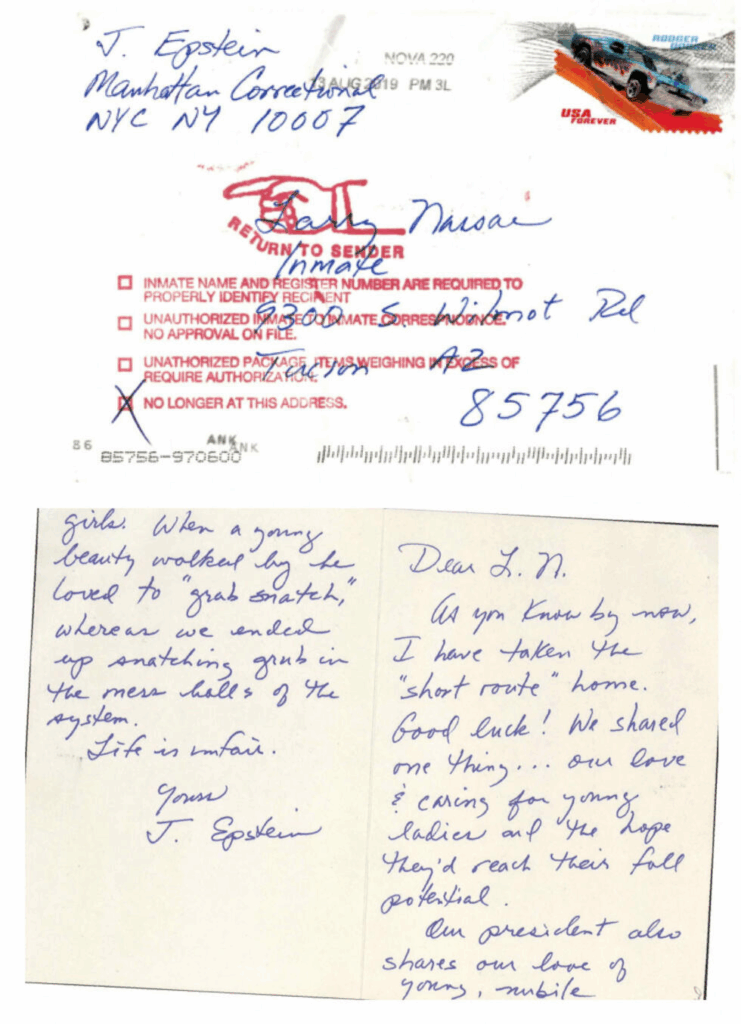 J. Epstein
Manhattan Correctional
NYC NY 10007
NOVA 220
13 AUG 2019 PM 3L
RODGER
DODGER
USA
FOREVER
Larry Nassar
Inmate
9300 S. Wilmot Rd
Tucson AZ
85756
RETURN TO SENDER
INMATE NAME AND REGISTER NUMBER ARE REQUIRED TO
PROPERLY IDENTIFY RECIPIENT
UNAUTHORIZED INMATE TO INMATE CORRESPONDENCE.
NO APPROVAL ON FILE.
UNATHORIZED PACKAGE, ITEMS WEIGHING IN EXCESS OF
REQUIRE AUTHORIZATION.
X NO LONGER AT THIS ADDRESS.
86
ANK
ANK
85756-970600
Dear L. N.
As you know by now,
I have taken the
"short route" home.
Good luck! We shared
one thing... our love
& caring for young
ladies and the hope
they'd reach their full
potential.
Our president also
shares our love of
young, nubile
girls. When a young
beauty walked by he
loved to "grab snatch,"
whereas we ended
up snatching grub in
the mess halls of the
system.
Life is unfair.
Yours
J. Epstein